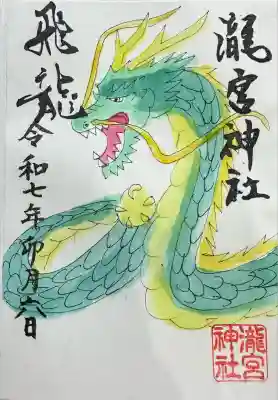 瀧宮神社
飛龍
令和七年卯月六日
瀧宮
神社